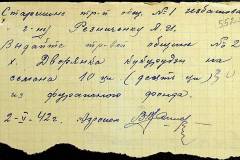 Старшине тр-й общ. №1
г-ну Резниченко Я. И. 552
Выдайте тр-вой общине №2
х. Дворянка кукурузы на
семена 10 цн (десять цн)
из фуражного фонда.
2-V-42г. Агроном